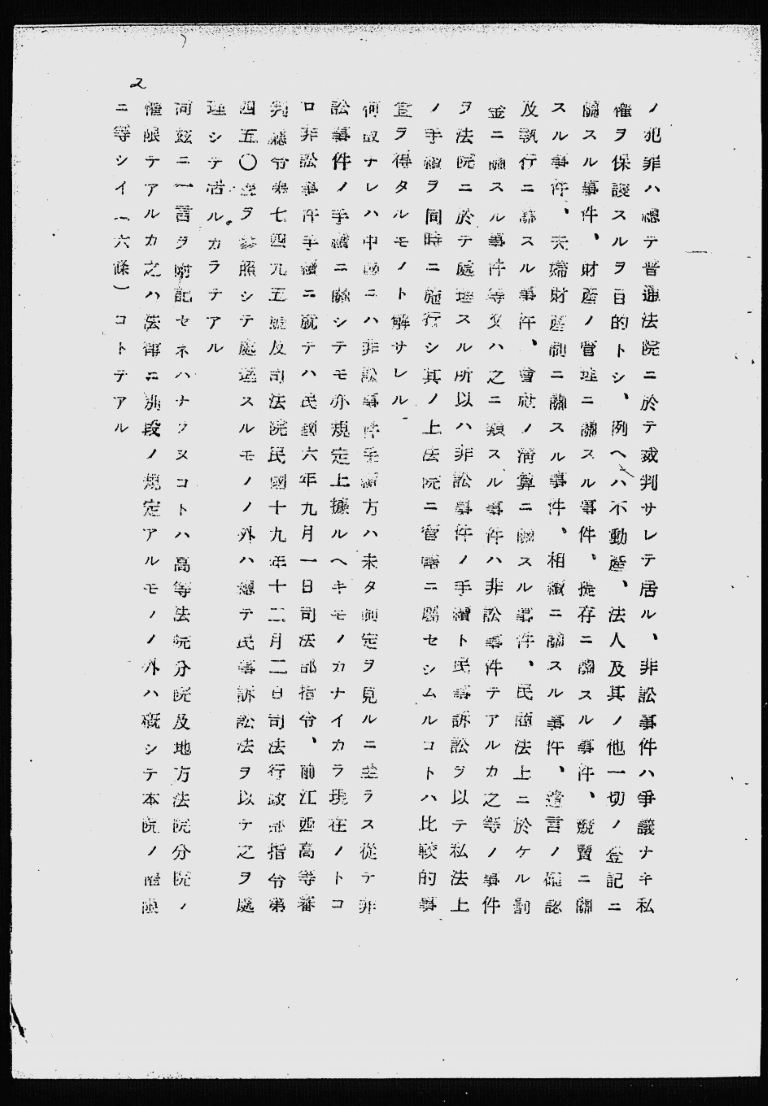 2
ノ犯罪ハ總テ普通法院ニ於テ裁判サレテ居ル、非訟事件ハ爭議ナキ私
權ヲ保護スルヲ目的トシ、例ヘハ不動產、法人及其ノ他一切ノ登記ニ
關スル事件、財產ノ管理ニ關スル事件、提存ニ關スル事件、競賣ニ關
スル事件、夫婦財產制ニ關スル事件、相續ニ關スル事件、遺言ノ確認
及執行ニ關スル事件、會社ノ淸算ニ關スル事件、民商法上ニ於ケル罰
金ニ關スル事件等又ハ之ニ類スル事件ハ非訟事件テアルカ之等ノ事件
ヲ法院ニ於テ處理スル所以ハ非訟事件ノ手續ト民事訴訟ヲ以テ私法上
ノ手續ヲ同時ニ施行シ其ノ上法院ニ管轄ニ屬セシムルコトハ比較的事
宜ヲ得タルモノト解サレル
何故ナレハ中國ニハ非訟事件手續方ハ未タ制定ヲ見ルニ至ラス從テ非
訟事件ノ手續ニ關シテモ亦規定上據ルヘキモノカナイカラ現在ノトコ
ロ非訟事件手續ニ就テハ民國六年九月一日司法部指令、前江西高等審
判廳令第七四九五號反司法院民國十九年十二月二日司法行政部指令第
四五〇號ヲ參照シテ處理スルモノノ外ハ總テ民事訴訟法ヲ以テ之ヲ處
理シテ居ルカラテアル
尙玆ニ一言ヲ附記セネハナラヌコトハ高等法院分院及地方法院分院ノ
權限テアルカ之ハ法律ニ別段ノ規定アルモノノ外ハ槪シテ本院ノ權限
ニ等シイ(六條)コトテアル